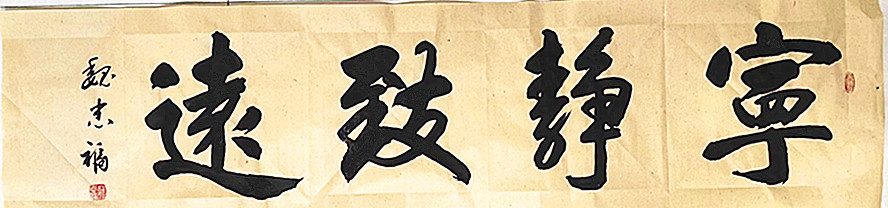 寧靜致遠
魏忠福